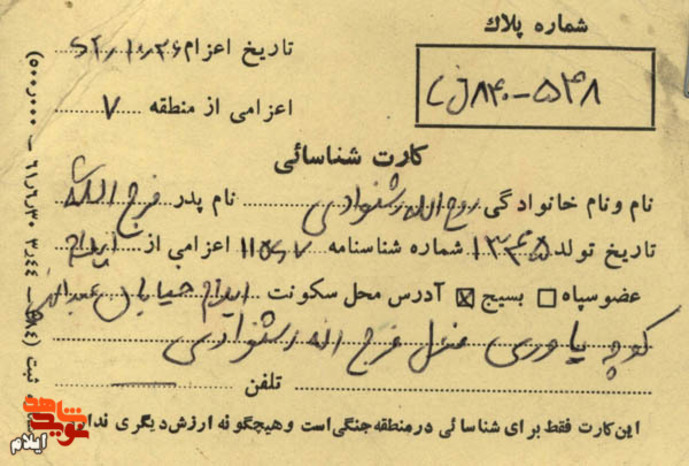 شماره پلاك
تاریخ اعزام ۶۲٫۱۰٫۲۶
۵۴۸-۸۴۰
اعزامی از منطقه ۷
کارت شناسائی
نام ونام خانوادگی روح الله رشنوادی نام پدر فرج الله
تاریخ تولد ۱۳۴۵ شماره شناسنامه ۱۱۵۷ اعزامی از ایلام
عضوسپاه □ بسیج ☒ آدرس محل سکونت ایلام خیابان
کوچه یاوری منزل فرج اله رشنوادی
تلفن
این کارت فقط برای شناسائی درمنطقه جنگی است وهیچگونه ارزش دیگری
ثبت
شاهد
نوید
ایلام